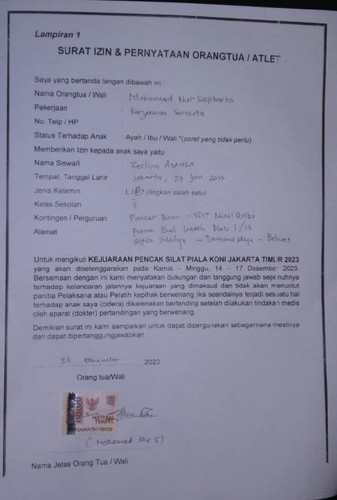 Lampiran 1
SURAT IZIN & PERNYATAAN ORANGTUA / ATLET
Saya yang bertanda tangan dibawah ini :
Nama Orangtua / Wali : Mohamad Nur
Pekerjaan : Karyawan Swasta
No. Telp / HP
Status Terhadap Anak Ayah / Ibu / Wali *(coret yang tidak perlu)
Memberikan Izin kepada anak saya yaitu :
Nama Siswa/i :
Tempat, Tanggal Lahir : Jakarta,
Jenis Kelamin : L/P (lingkari salah satu)
Kelas Sekolah :
Kontingen / Perguruan :
Alamat :
Untuk mengikuti KEJUARAAN PENCAK SILAT PIALA KONI JAKARTA TIMUR 2023
yang akan diselenggarakan pada Kamis – Minggu, 14 – 17 Desember 2023.
Bersamaan dengan ini kami menyatakan dukungan dan tanggung jawab sepenuhnya
terhadap kelancaran jalannya kejuaraan yang dimaksud dan tidak akan menuntut
panitia Pelaksana atau Pelatih kepihak berwenang jika seandainya terjadi sesuatu hal
terhadap anak saya (cidera) dikarenakan bertanding setelah dilakukan tindakan medis
oleh aparat (dokter) pertandingan yang berwenang.
Demikian surat ini kami sampaikan untuk dapat dipergunakan sebagaimana mestinya
dan dapat dipertanggungjawabkan.
2023
Orang tua/Wali
METERAI
TEMPEL
Nama Jelas Orang Tua / Wali